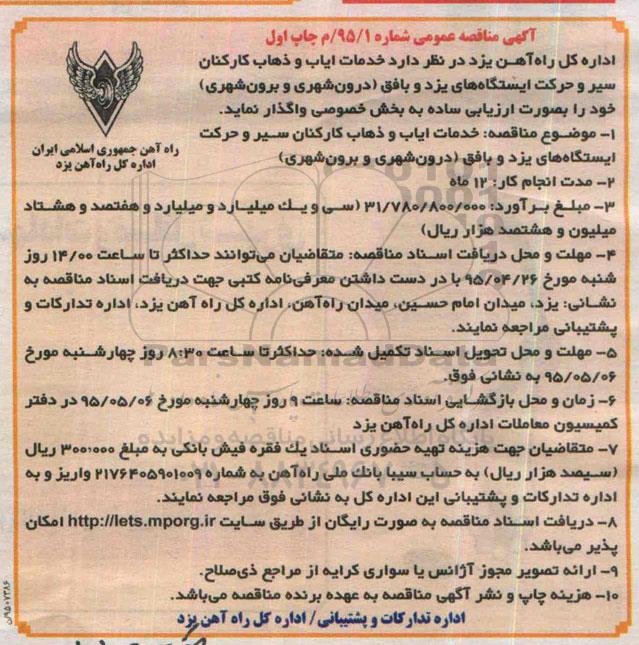 آگهی مناقصه عمومی شماره ۹۵/۱/م چاپ اول
اداره کل راه‌آهن یزد در نظر دارد خدمات ایاب و ذهاب کارکنان
سیر و حرکت ایستگاه‌های یزد و بافق (درون‌شهری و برون‌شهری)
خود را بصورت ارزیابی ساده به بخش خصوصی واگذار نماید.
۱- موضوع مناقصه: خدمات ایاب و ذهاب کارکنان سیر و حرکت
ایستگاه‌های یزد و بافق (درون‌شهری و برون‌شهری)
راه آهن جمهوری اسلامی ایران
اداره کل راه‌آهن یزد
۲- مدت انجام کار: ۱۲ ماه
۳- مبلغ برآورد: ۳۱/۷۸۰/۸۰۰/۰۰۰ (سی و یك میلیارد و میلیارد و هفتصد و هشتاد
میلیون و هشتصد هزار ریال)
۴- مهلت و محل دریافت اسناد مناقصه: متقاضیان می‌توانند حداکثر تا ساعت ۱۴/۰۰ روز
شنبه مورخ ۹۵/۰۴/۲۶ با در دست داشتن معرفی‌نامه کتبی جهت دریافت اسناد مناقصه به
نشانی: یزد، میدان امام حسین، میدان راه‌آهن، اداره کل راه آهن یزد، اداره تدارکات و
پشتیبانی مراجعه نمایند.
۵- مهلت و محل تحویل اسناد تکمیل شده: حداکثرتا ساعت ۸:۳۰ روز چهارشنبه مورخ
۹۵/۰۵/۰۶ به نشانی فوق.
۶- زمان و محل بازگشایی اسناد مناقصه: ساعت ۹ روز چهارشنبه مورخ ۹۵/۰۵/۰۶ در دفتر
کمیسیون معاملات اداره کل راه‌آهن یزد
۷- متقاضیان جهت هزینه تهیه حضوری اسناد یك فقره فیش بانکی به مبلغ ۳۰۰،۰۰۰ ریال
(سیصد هزار ریال) به حساب سیبا بانك ملی راه‌آهن به شماره ۲۱۷۶۴۰۵۹۰۱۰۰۹ واریز و به
اداره تدارکات و پشتیبانی این اداره کل به نشانی فوق مراجعه نمایند.
۸- دریافت اسناد مناقصه به صورت رایگان از طریق سایت http://lets.mporg.ir امکان
پذیر می‌باشد.
۹- ارائه تصویر مجوز آژانس یا سواری کرایه از مراجع ذی‌صلاح.
۱۰- هزینه چاپ و نشر آگهی مناقصه به عهده برنده مناقصه می‌باشد.
اداره تدارکات و پشتیبانی/ اداره کل راه آهن یزد
ParsNamadData